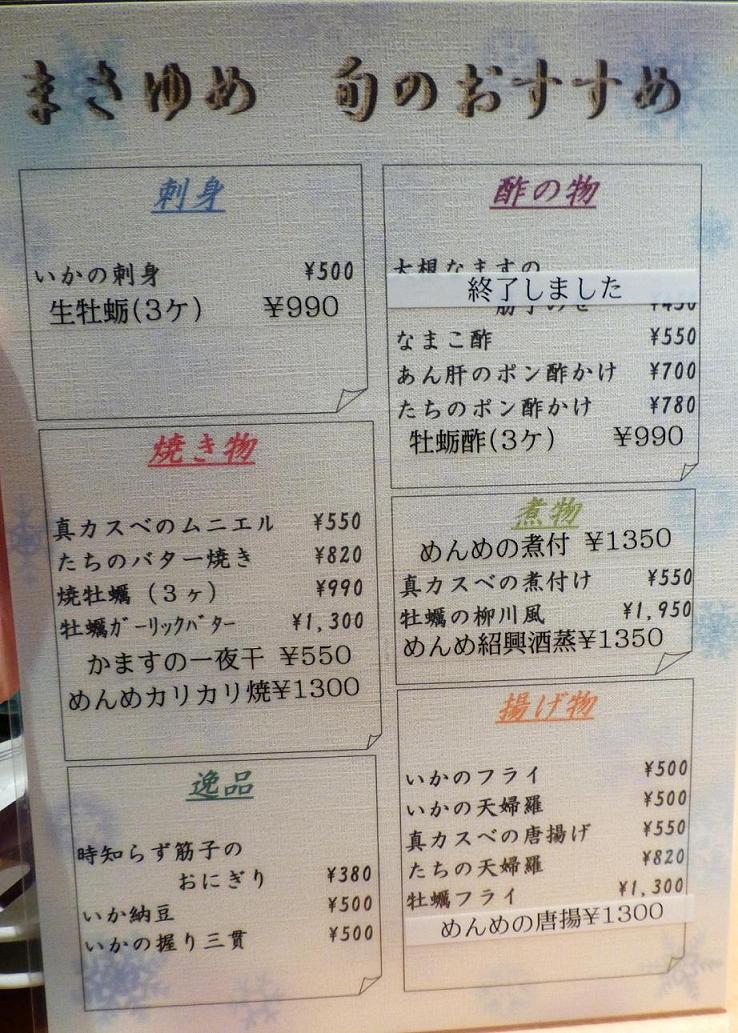 まさゆめ 旬のおすすめ
刺身
いかの刺身 ¥500
生牡蛎(3ケ) ¥990
焼き物
真カスベのムニエル ¥550
たちのバター焼き ¥820
焼牡蠣(3ヶ) ¥990
牡蠣ガーリックバター ¥1,300
かますの一夜干 ¥550
めんめカリカリ焼¥1300
逸品
時知らず筋子の
おにぎり ¥380
いか納豆 ¥500
いかの握り三貫 ¥500
酢の物
大根なますの
終了しました
なまこ酢 ¥550
あん肝のポン酢かけ ¥700
たちのポン酢かけ ¥780
牡蛎酢(3ケ) ¥990
煮物
めんめの煮付 ¥1350
真カスベの煮付け ¥550
牡蠣の柳川風 ¥1,950
めんめ紹興酒蒸¥1350
揚げ物
いかのフライ ¥500
いかの天婦羅 ¥500
真カスベの唐揚げ ¥550
たちの天婦羅 ¥820
牡蠣フライ ¥1,300
めんめの唐揚¥1300